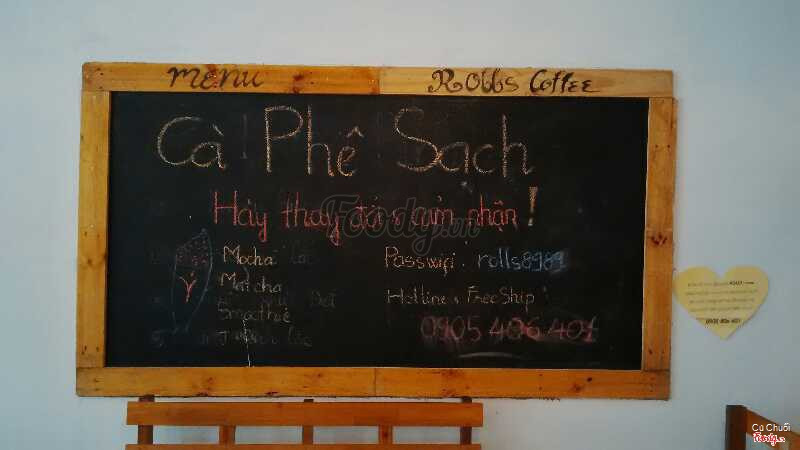 MENU ROBBS COFFEE
Cà Phê Sạch
Hãy thay đổi cảm nhận!
Mocha
Matcha
Smoothie
Passwifi: rolls8989
Hotline & Free Ship:
0905 406 401
Foody.vn
0905 406 401
Cà Chuối
Foody.vn